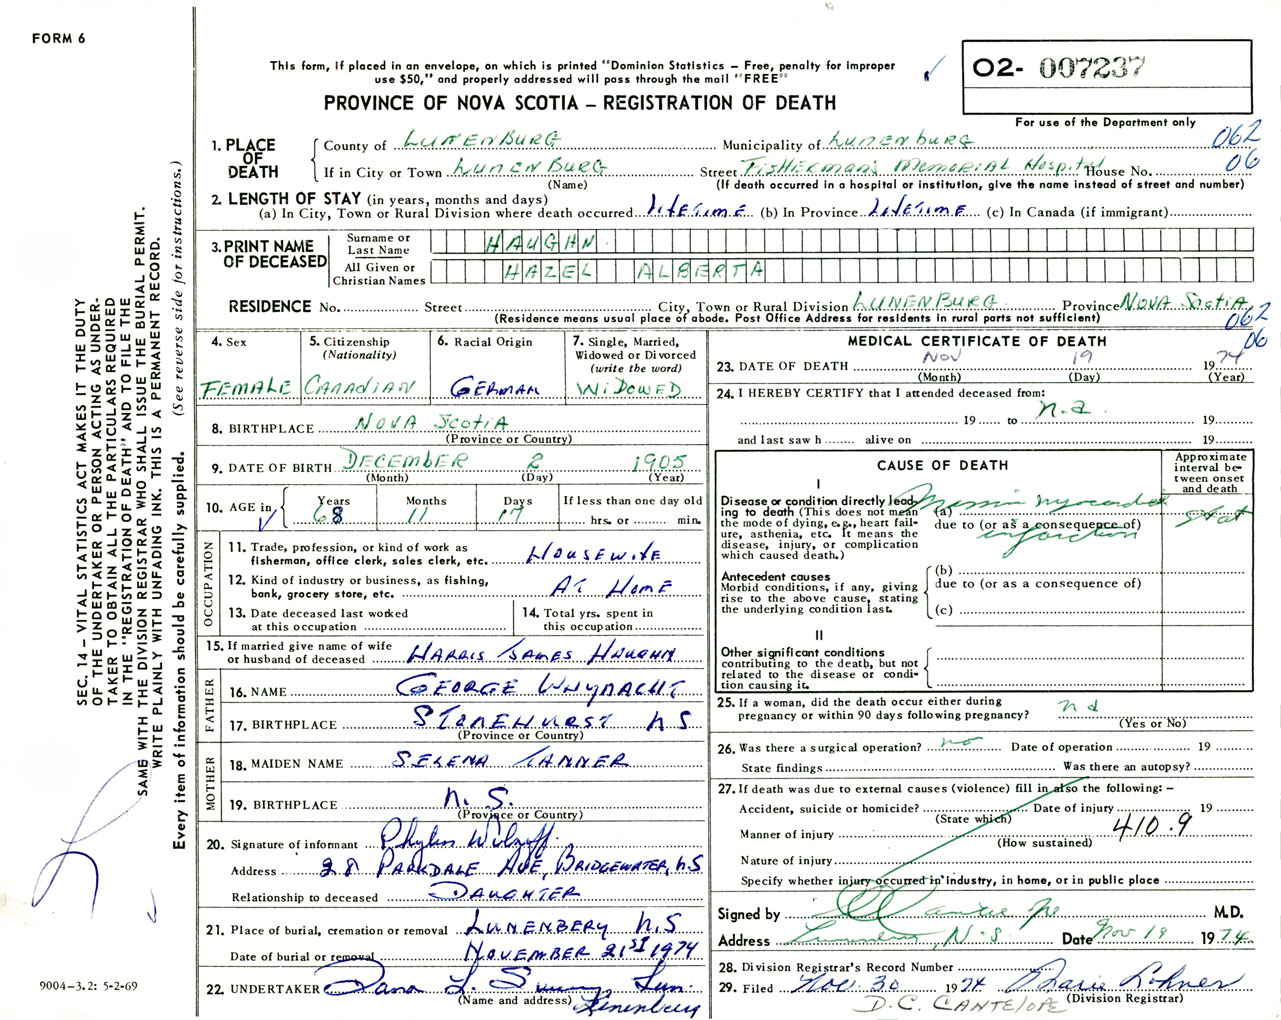 FORM 6
This form, if placed in an envelope, on which is printed "Dominion Statistics – Free, penalty for improper
use $50," and properly addressed will pass through the mail "FREE"
PROVINCE OF NOVA SCOTIA – REGISTRATION OF DEATH
02- 007237
For use of the Department only
062
06
1. PLACE OF DEATH
County of LUNENBURG Municipality of LUNENBURG
If in City or Town LUNENBURG Street FISHERMAN'S MEMORIAL HOSPITAL House No.
(Name) (If death occurred in a hospital or institution, give the name instead of street and number)
2. LENGTH OF STAY (in years, months and days)
(a) In City, Town or Rural Division where death occurred LIFETIME (b) In Province LIFETIME (c) In Canada (if immigrant)
3. PRINT NAME OF DECEASED
Surname or Last Name HAUGHN
All Given or Christian Names HAZEL ALBERTA
RESIDENCE No. Street City, Town or Rural Division LUNENBURG Province NOVA SCOTIA
(Residence means usual place of abode. Post Office Address for residents in rural parts not sufficient)
062
06
4. Sex FEMALE
5. Citizenship (Nationality) CANADIAN
6. Racial Origin GERMAN
7. Single, Married, Widowed or Divorced (write the word) WIDOWED
8. BIRTHPLACE NOVA SCOTIA
(Province or Country)
9. DATE OF BIRTH DECEMBER 2 1905
(Month) (Day) (Year)
10. AGE in Years 68 Months 11 Days 17 If less than one day old
hrs. or min.
OCCUPATION
11. Trade, profession, or kind of work as
fisherman, office clerk, sales clerk, etc. HOUSEWIFE
12. Kind of industry or business, as fishing,
bank, grocery store, etc. AT HOME
13. Date deceased last worked
at this occupation
14. Total yrs. spent in
this occupation
15. If married give name of wife
or husband of deceased HARRIS JAMES HAUGHN
FATHER
16. NAME GEORGE WHYNACHT
17. BIRTHPLACE STONEHURST N S
(Province or Country)
MOTHER
18. MAIDEN NAME SELENA TANNER
19. BIRTHPLACE N. S.
(Province or Country)
20. Signature of informant Phyllis
Address 28 PARKDALE AVE, BRIDGEWATER, N.S
Relationship to deceased DAUGHTER
21. Place of burial, cremation or removal LUNENBERY N.S
Date of burial or removal NOVEMBER 21ST 1974
22. UNDERTAKER Dana L.
(Name and address) Lunenburg
MEDICAL CERTIFICATE OF DEATH
23. DATE OF DEATH Nov 19 1974
(Month) (Day) (Year)
24. I HEREBY CERTIFY that I attended deceased from:
19 to n.a. 19
and last saw h alive on 19
CAUSE OF DEATH
Approximate interval between onset and death
I
Disease or condition directly leading to death (This does not mean
the mode of dying, e.g., heart failure, asthenia, etc. It means the
disease, injury, or complication
which caused death.)
(a) Massive myocardial
due to (or as a consequence of)
infarction
stat
Antecedent causes
Morbid conditions, if any, giving
rise to the above cause, stating
the underlying condition last.
(b)
due to (or as a consequence of)
(c)
II
Other significant conditions
contributing to the death, but not
related to the disease or condition causing it.
25. If a woman, did the death occur either during
pregnancy or within 90 days following pregnancy? na
(Yes or No)
26. Was there a surgical operation? no Date of operation 19
State findings Was there an autopsy?
27. If death was due to external causes (violence) fill in also the following: –
Accident, suicide or homicide? Date of injury 19
(State which)
Manner of injury 410.9
(How sustained)
Nature of injury
Specify whether injury occurred in industry, in home, or in public place
Signed by M.D.
Address Lunenburg, N.S. Date Nov 19 1974
28. Division Registrar's Record Number
29. Filed Nov. 30 1974 Marie Lohnes
(Division Registrar)
D.C. CANTELOPE
SEC. 14 – VITAL STATISTICS ACT MAKES IT THE DUTY
OF THE UNDERTAKER OR PERSON ACTING AS UNDERTAKER TO OBTAIN ALL THE PARTICULARS REQUIRED
IN THE "REGISTRATION OF DEATH" AND TO FILE THE
SAME WITH THE DIVISION REGISTRAR WHO SHALL ISSUE THE BURIAL PERMIT.
WRITE PLAINLY WITH UNFADING INK. THIS IS A PERMANENT RECORD.
Every item of information should be carefully supplied. (See reverse side for instructions.)
9004–3.2: 5-2-69